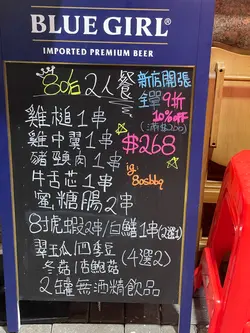 BLUE GIRL®
IMPORTED PREMIUM BEER
80后 2人餐
新店開張
全單9折
10% OFF
(滿$200)
$268
雞槌1串
雞中翼1串
豬頸肉1串
牛舌芯1串
ig:
80sbbq
蜜糖腸2串
8吋虎蝦2串/白鱔1串(2選1)
翠玉瓜/四季豆
冬菇/杏鮑菇
(4選2)
2罐無酒精飲品